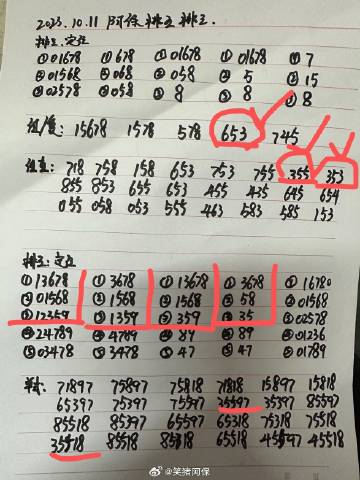 2023.10.11 阿保排三排五
排三.定位
①01678 ①678 ①01678 ①01678 ①7
②01568 ②068 ②058 ②5 ②15
③02578 ③058 ③8 ③8 ③8
组/直: 15678 1578 578 653 745
组直: 718 758 158 653 753 755 355 353
855 853 655 653 455 435 645 654
055 058 053 555 463 583 585 153
排五:定位
①13678 ①3678 ①13678 ①3678 ①16780
②01568 ②1568 ②1568 ②58 ②01568
③12359 ③1359 ③359 ③35 ③02578
④24789 ④4789 ④89 ④89 ④01236
⑤03478 ⑤3478 ⑤47 ⑤47 ⑤01789
71897 75897 75818 71818 15897 15818
65397 75397 75597 35597 35397 85597
85518 85397 65597 65318 75318 75518
35518 85518 85318 65518 45597 45518
@笑猪阿保